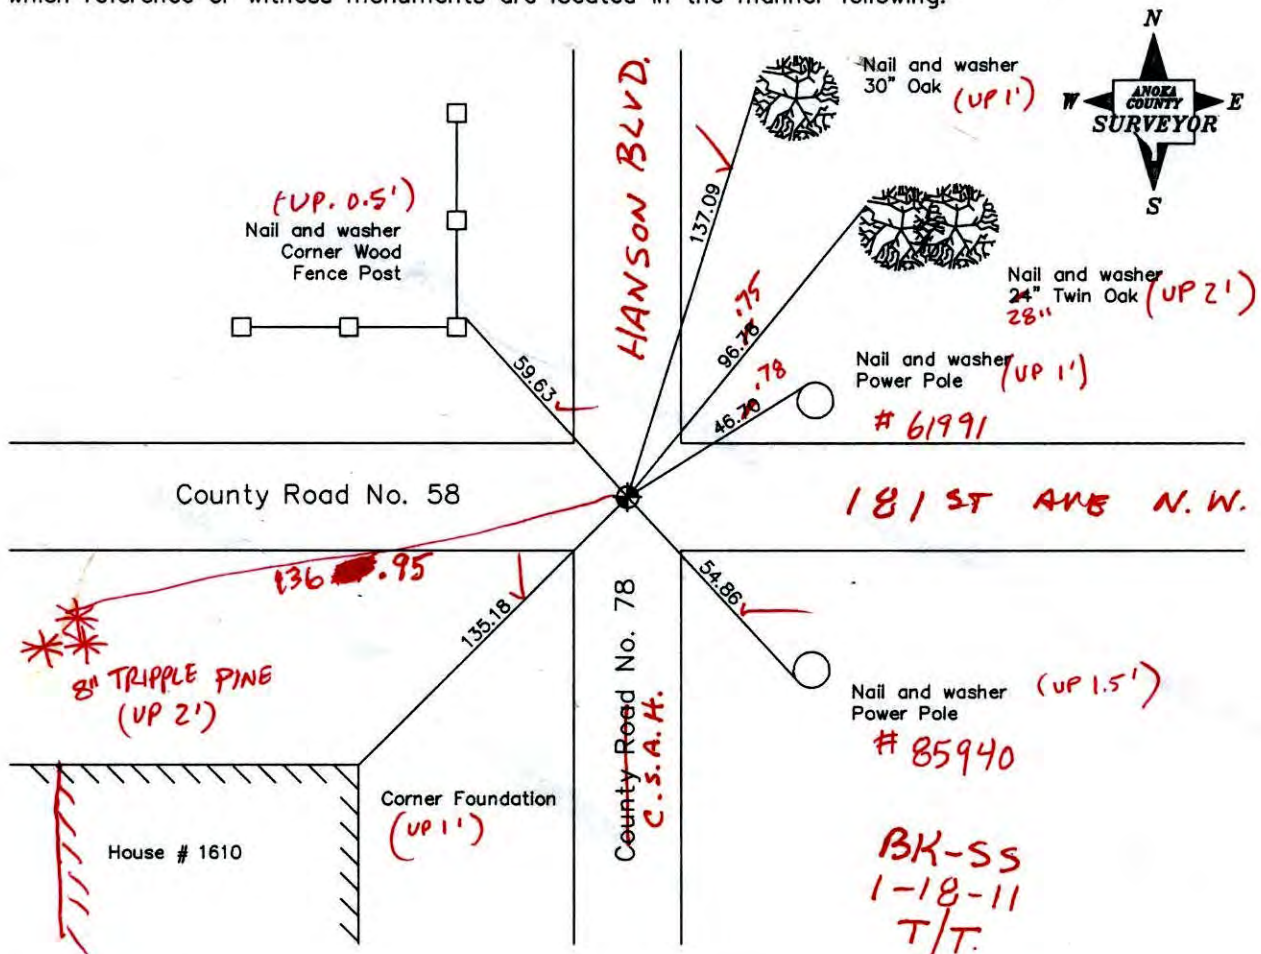 which reference or witness monuments are located in the manner following:
N
W
ANOKA
COUNTY
E
SURVEYOR
S
HANSON BLVD.
Nail and washer
30" Oak (UP 1')
137.09
(UP. 0.5')
Nail and washer
Corner Wood
Fence Post
Nail and washer
24" Twin Oak (UP 2')
28"
.75
96.78
59.63
.78
46.70
Nail and washer
Power Pole (UP 1')
# 61991
County Road No. 58
181 ST AVE N.W.
136 .95
135.18
54.86
8" TRIPPLE PINE
(UP 2')
County Road No. 78
C.S.A.H.
Nail and washer (UP 1.5')
Power Pole
# 85940
Corner Foundation
(UP 1')
House # 1610
BK-SS
1-18-11
T/T.